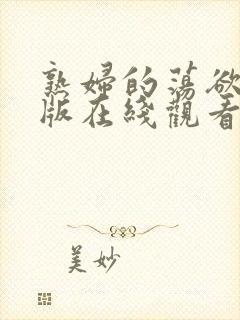 熟婦的蕩欲
版在綫觀看
美妙